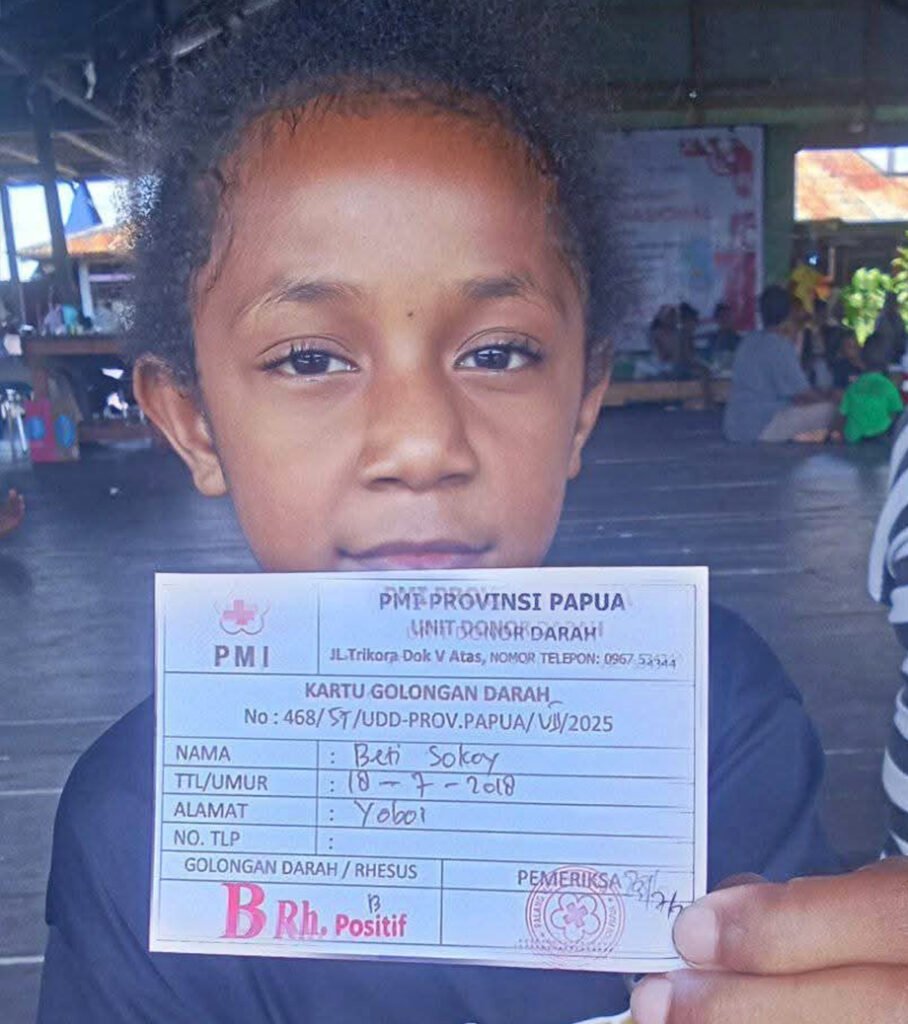 PMI
PMI PROVINSI PAPUA
UNIT DONOR DARAH
JL.Trikora Dok V Atas, NOMOR TELEPON: 0967
KARTU GOLONGAN DARAH
No : 468/ST/UDD-PROV.PAPUA/VII/2025
NAMA : Beti Sokoy
TTL/UMUR : 18 - 7 - 2018
ALAMAT : Yoboi
NO. TLP :
GOLONGAN DARAH / RHESUS
PEMERIKSA
B
B Rh. Positif
NASIONAL